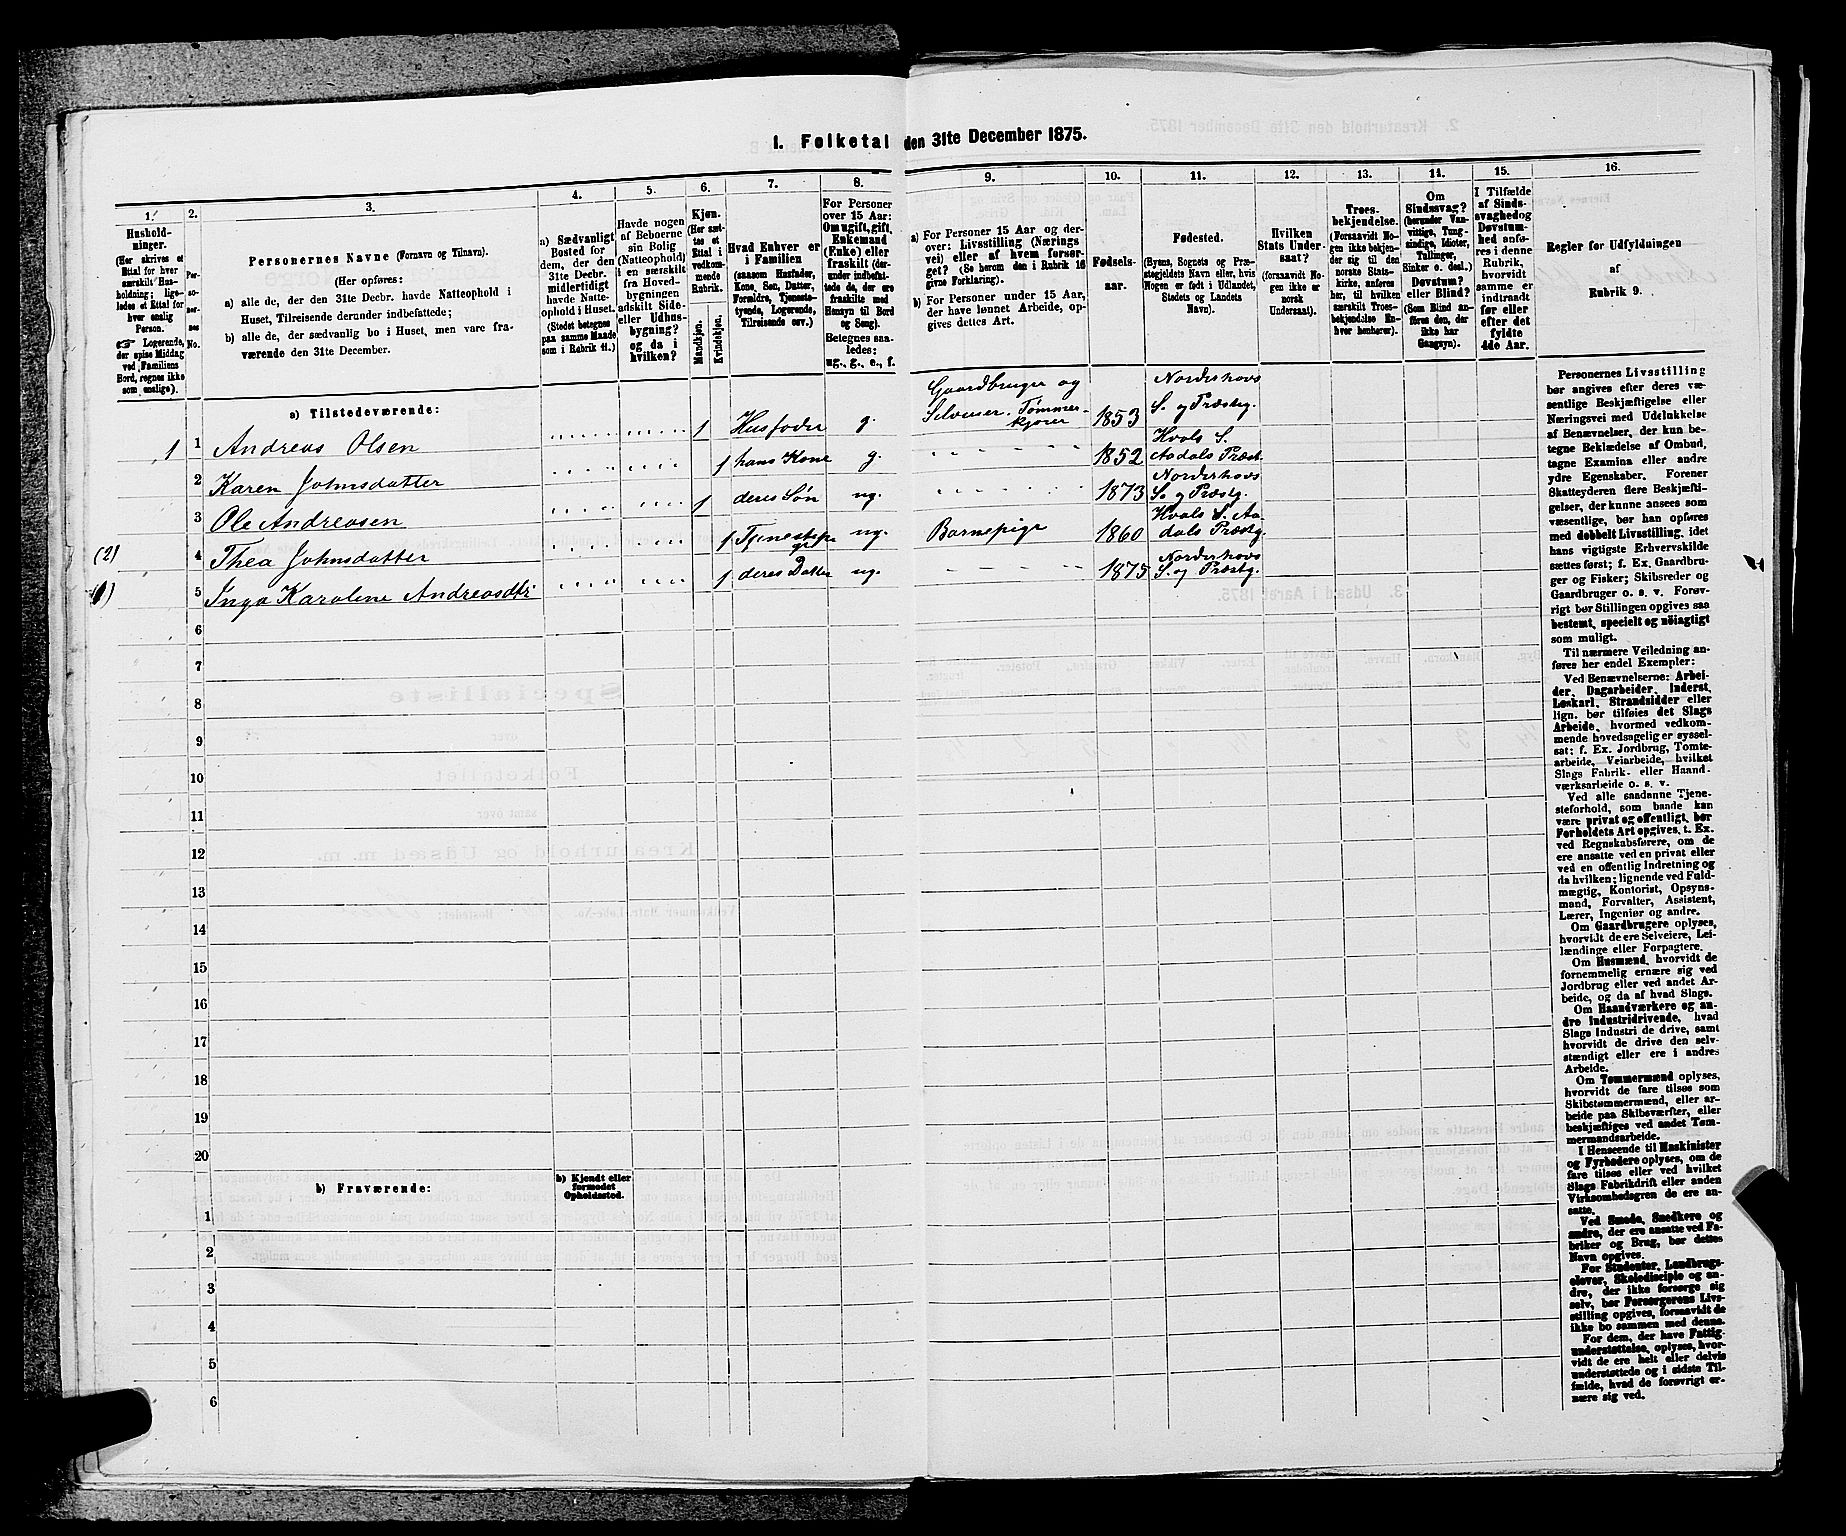 1. Folketal den 31te December 1875.
1.
2.
3.
4.
5.
6.
7.
8.
9.
10.
11.
12.
13.
14.
15.
16.
Hushold-
ninger.
(Her skrives et
Ettal for hver
særskilt Hus-
holdning; lige-
ledes et Ettal for
hver enslig
Person.
☞ Logerende,
der spise Middag
ved Familiens
Bord, regnes ikke
som enslige).
Per-
so-
ner-
nes
No.
Personernes Navne (Fornavn og Tilnavn).
(Her opføres:
a) alle de, der den 31te Decbr. havde Natteophold i
Huset, Tilreisende derunder indbefattede;
b) alle de, der sædvanlig bo i Huset, men vare fra-
værende den 31te December.
a) Sædvanligt
Bosted for
dem, der den
31te Decbr.
midlertidigt
havde Natte-
ophold i Huset.
(Stedet betegnes
paa samme Maade
som i Rubrik 11.)
Havde nogen
af Beboerne
sin Bolig
(Natteophold)
i en særskilt
fra Hoved-
bygningen
adskilt Side-
eller Udhus-
bygning?
og da i
hvilken?
Kjøn.
(Her sæt-
tes et
Ettal i
vedkom-
mende
Rubrik.
Mandkjøn.
Kvindekjøn.
Hvad Enhver er
i Familien
(saasom Husfader,
Kone, Søn, Datter,
Forældre, Tjeneste-
tyende, Logerende,
Tilreisende osv.)
For Personer
over 15 Aar:
Om ugift, gift,
Enkemand
(Enke) eller
fraskilt (der-
under indbefat-
tede de, der ere
fraskilte med
Hensyn til Bord
og Seng).
Betegnes saa-
ledes:
ug., g., e., f.
a) For Personer 15 Aar og der-
over: Livsstilling (Nærings
vei) eller af hvem forsør-
get? (Se herom den i Rubrik 16
givne Forklaring).
b) For Personer under 15 Aar,
der have lønnet Arbeide, op-
gives dettes Art.
Fødsels-
aar.
Fødested.
(Byens, Sognets og Præ-
stegjeldets Navn eller, hvis
Nogen er født i Udlandet,
Stedets og Landets
Navn).
Hvilken
Stats Under-
saat?
(forsaavidt No-
gen ikke er
norsk
Undersaat).
Troes-
bekjendelse.
(Forsaavidt No-
gen ikke bekjen-
der sig til den
norske Stats-
kirke, anføres
her, til hvilken
særskilt Troes-
bekjendelse En-
hver henhører).
Om
Sindssvag?
(herunder Van-
vittige, Tung-
sindige, Idioter,
Tullinger,
Sinker o. desl.)
Døvstum?
eller Blind?
(Som Blind an-
føres den, der
ikke har
Gangsyn).
I Tilfælde
af Sinds-
svaghed og
Døvstum-
hed anfø-
res i denne
Rubrik,
hvorvidt
samme er
indtraadt
før eller
efter det
fyldte
4de Aar.
Regler for Udfyldningen
af
Rubrik 9.
a) Tilstedeværende:
1 1 Andreas Olsen 1 Husfader g. Gaardbruger og Selveier. Tømmerkjører 1853 Norderhovs S. og Præstg.
2 Karen Johnsdatter 1 hans Kone g. 1852 Hvals S. Aadals Præst.
3 Ole Andreasen 1 deres Søn ug. 1873 Norderhovs S. og Præstg.
(2) 4 Thea Johnsdatter 1 Tjenestepige ug. Barnepige 1860 Hvals S. Aadals Præstg.
(1) 5 Inga Karoline Andreasdtr 1 deres Datter ug. 1875 Norderhovs S. og Præstg.
6
7
8
9
10
11
12
13
14
15
16
17
18
19
20
b) Fraværende:
b) Kjendt eller
formodet
Opholdssted.
1
2
3
4
5
6
Personernes Livsstilling
bør angives efter deres væ-
sentlige Beskjæftigelse eller
Næringsvei med Udelukkelse
af Benævnelser, der kun be-
tegne Beklædelse af Ombud,
tagne Examina eller andre
ydre Egenskaber. Forener
Skatteyderen flere Beskjæfti-
gelser, der kunne ansees som
væsentlige, bør han opføres
med dobbelt Livsstilling, idet
hans vigtigste Erhvervskilde
sættes først; f. Ex. Gaardbru-
ger og Fisker; Skibsreder og
Gaardbruger o. s. v. Forøv-
rigt bør Stillingen opgives saa
bestemt, specielt og nøiagtigt
som muligt.
Til nærmere Veiledning an-
føres her endel Exempler:
Ved Benævnelserne: Arbei-
der, Dagarbeider, Inderst,
Løskarl, Strandsidder eller
lign. bør tilføies det Slags
Arbeide, hvormed vedkom-
mende hovedsagelig er syssel-
sat; f. Ex. Jordbrug, Tomte-
arbeide, Veiarbeide, hvilket
Slags Fabrik- eller Haand-
værksarbeide o. s. v.
Ved alle saadanne Tjene-
steforhold, som baade kan
være privat og offentligt, bør
Forholdets Art opgives, t. Ex.
ved Regnskabsførere, om de
ere ansatte ved en privat eller
ved en offentlig Indretning og
da hvilken; lignende ved Fuld-
mægtig, Kontorist, Opsyns-
mand, Forvalter, Assistent,
Lærer, Ingeniør og andre.
Om Gaardbrugere oplyses,
hvorvidt de ere Selveiere, Lei-
lændinge eller Forpagtere.
Om Husmænd, hvorvidt de
fornemmelig ernære sig ved
Jordbrug eller ved andet Ar-
beide, og da af hvad Slags.
Om Haandværkere og an-
dre Industridrivende, hvad
Slags Industri de drive, samt
hvorvidt de drive den selv-
stændigt eller ere i andres
Arbeide.
Om Tømmermænd oplyses,
hvorvidt de fare tilsøs som
Skibstømmermænd, eller ar-
beide paa Skibsværfter, eller
beskjæftiges ved andet Tøm-
mermandsarbeide.
I Henseende til Maskinister
og Fyrbødere oplyses, om de
fare tilsøs eller ved hvilket
Slags Fabrikdrift eller anden
Virksomhedsgren de ere an-
satte.
Ved Smede, Snedkere og
andre, der ere ansatte ved Fa-
briker og Brug, bør dettes
Navn opgives.
For Studenter, Landbrugs-
elever, Skoledisciple og an-
dre, der ikke forsørge sig
selv, bør Forsørgerens Livs-
stilling opgives, forsaavidt de
ikke bo sammen med denne.
For dem, der have Fattig-
understøttelse, oplyses, hvor-
vidt de ere helt eller delvis
understøttede og i sidste Til-
fælde, hvad de forøvrigt er-
nære sig ved.